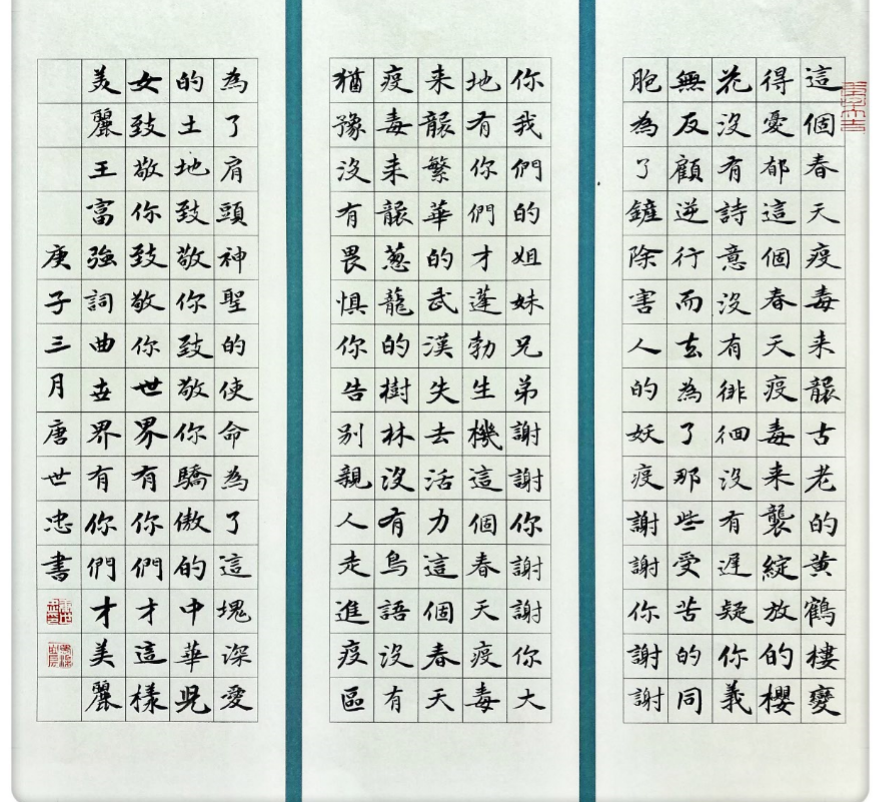 這個春天疫毒来襲古老的黄鶴樓變
得憂郁這個春天疫毒来襲綻放的櫻
花沒有詩意沒有徘徊沒有遲疑你義
無反顧逆行而去為了那些受苦的同
胞為了鏟除害人的妖疫謝謝你謝謝
你我們的姐妹兄弟謝謝你謝謝你大
地有你們才蓬勃生機這個春天疫毒
来襲繁華的武漢失去活力這個春天
疫毒来襲葱龍的樹林沒有鳥語沒有
猶豫沒有畏惧你告别親人走進疫區
為了肩頭神聖的使命為了這塊深愛
的土地致敬你致敬你驕傲的中華兒
女致敬你致敬你世界有你們才這樣
美麗王富強詞曲世界有你們才美麗
庚子三月唐世忠書